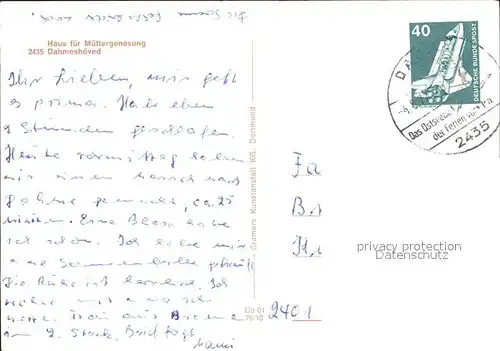 Die Sonne fehlt leider noch.
Haus für Müttergenesung
2435 Dahmeshöved
40
DEUTSCHE BUNDESPOST
Das Ostseebad
der Ferien
2435
Ihr Lieben, mir geht
es prima. Habe eben
2 Stunden geschlafen.
Heute vormittag haben
wir einen Marsch nach
Dahme gemacht, ca. 25
Minuten. Eine Blase habe
ich schon. Ich habe mir
eine Sonnenbrille gekauft.
Die Ruhe ist herrlich. Ich
wohne mit einer sehr
netten Frau aus Bremen
im 2. Stock.
Cramers Kunstanstalt KG, Dortmund
Fa
B
2401
privacy protection
Datenschutz